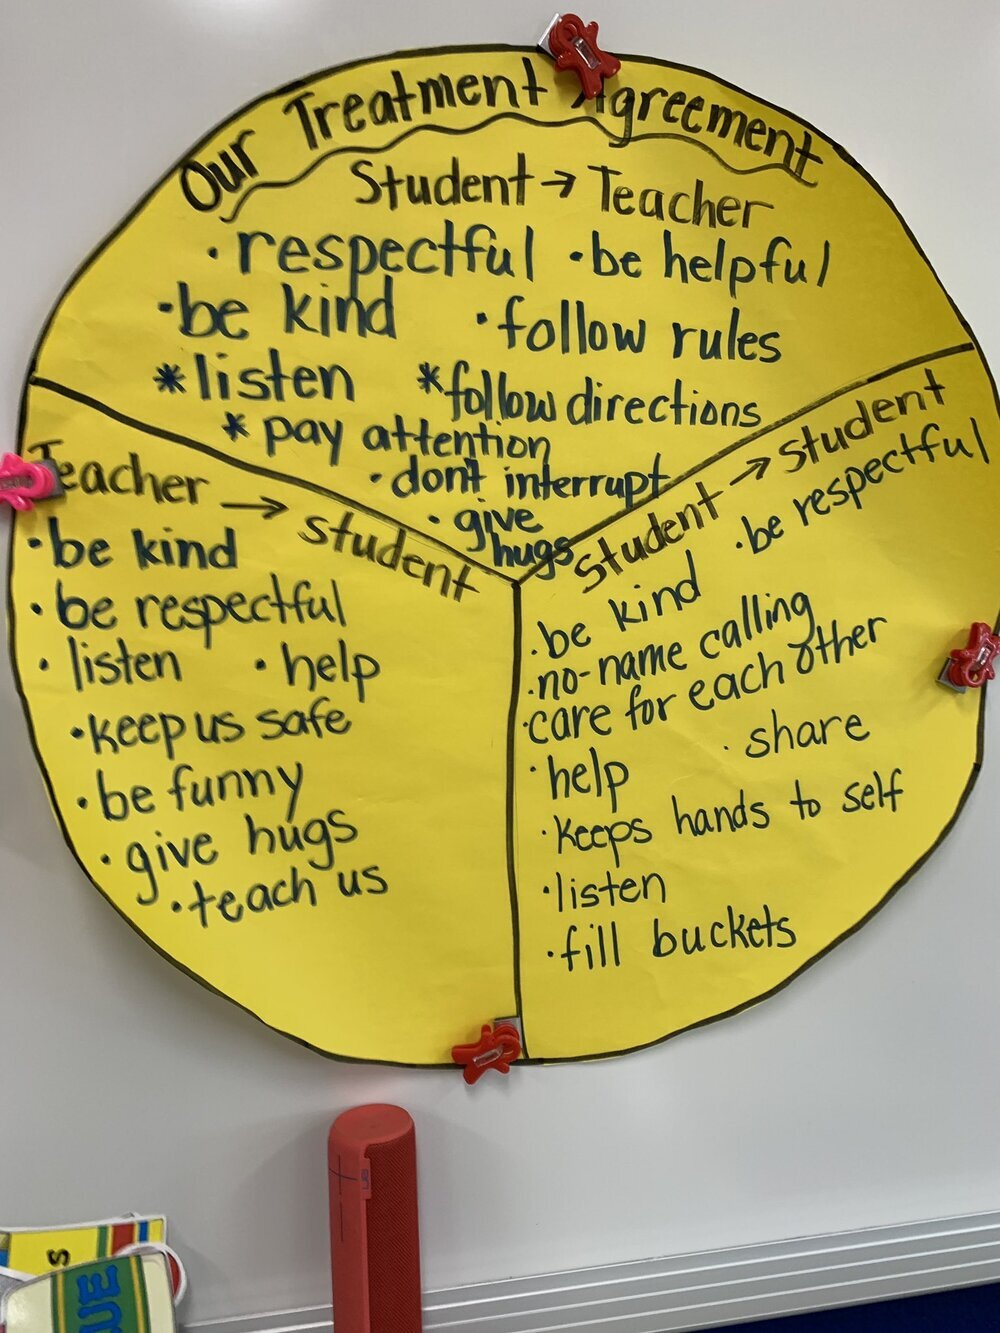 Our Treatment Agreement
Student → Teacher
• respectful • be helpful
• be kind • follow rules
* listen * follow directions
* pay attention
• don't interrupt
• give
hugs
Teacher → student
• be kind
• be respectful
• listen • help
• keep us safe
• be funny
• give hugs
• teach us
Student → student
• be respectful
• be kind
• no-name calling
• care for each other
• help • share
• keeps hands to self
• listen
• fill buckets
S
UE